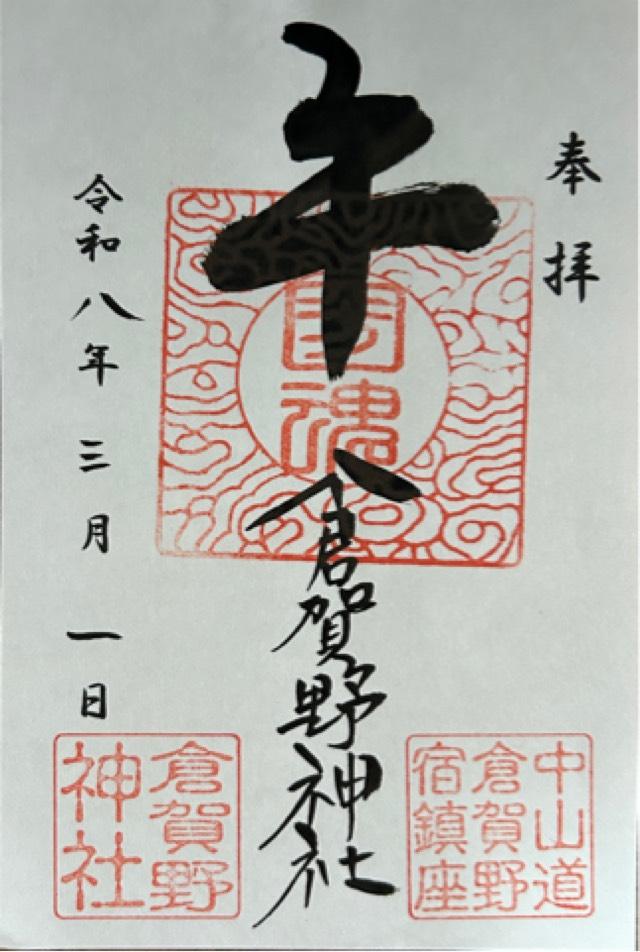 奉拝
午
國魂
倉賀野神社
令和八年三月一日
中山道
倉賀野
宿鎮座
倉賀野
神社